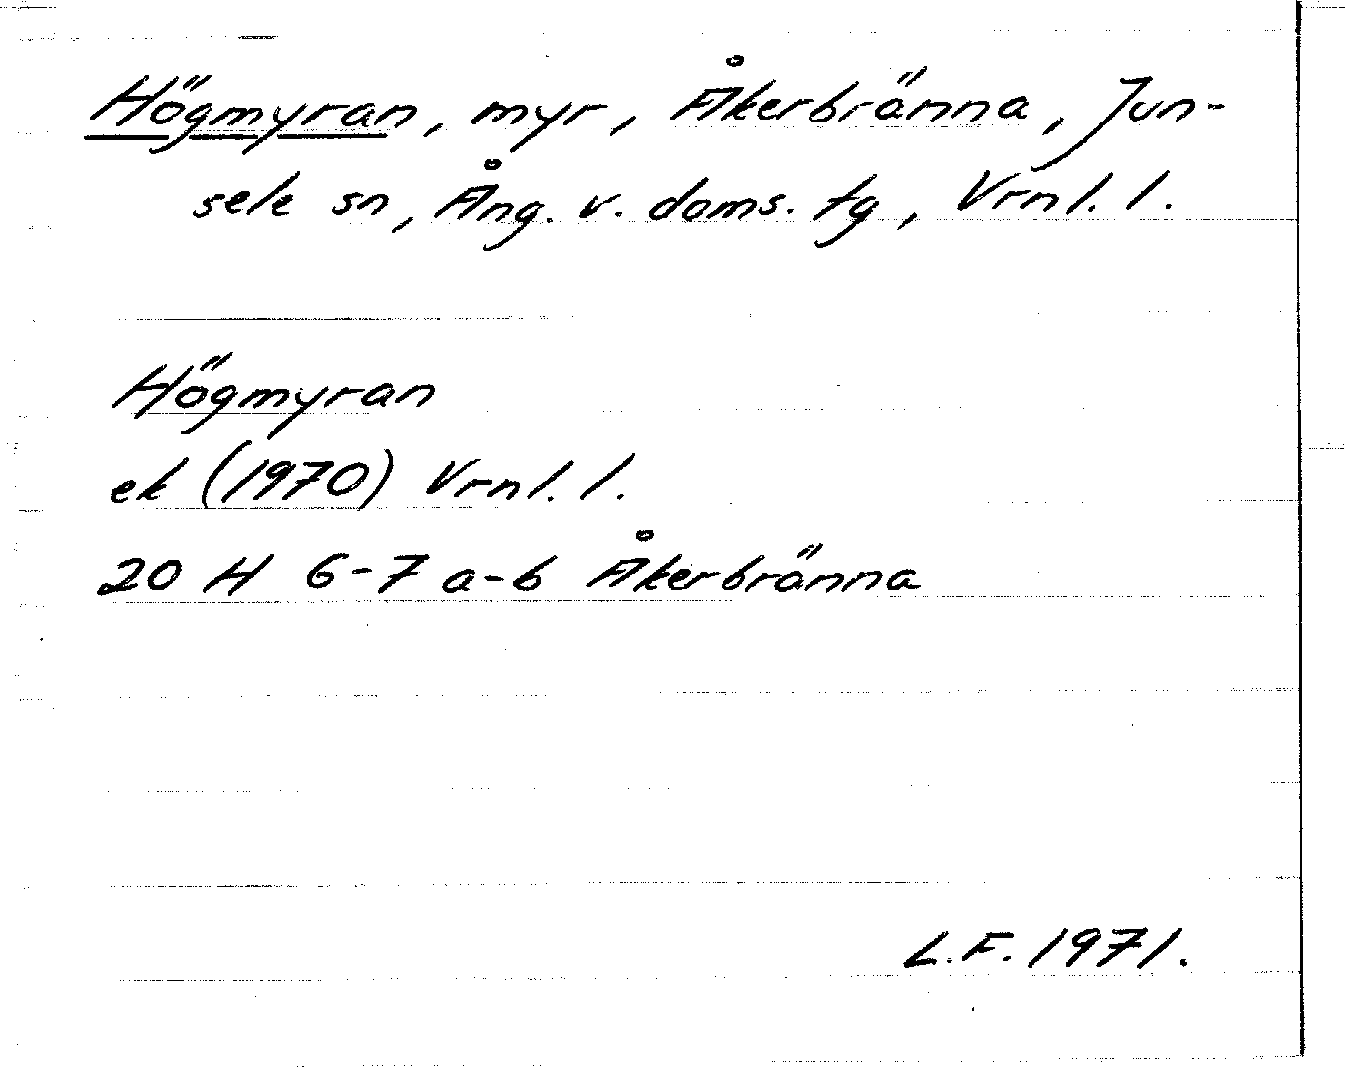 Högmyran, myr, Åkerbränna, Jun-
sele sn, Ång. v. doms. tg, Vrnl. l.
Högmyran
ek (1970) Vrnl. l.
20 H 6-7 a-b Åkerbränna
L.F. 1971.